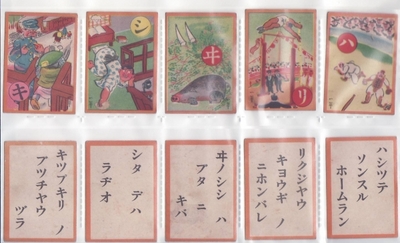 キ
シ
ヰ
リ
ハ
キツプキリ ノ
ブツチヤウ
ヅラ
シタ デハ
ラヂオ
ヰノシシ ハ
ブタ ニ
キバ
リクジヤウ
キヨウギ ノ
ニホンバレ
ハシツテ
ソンスル
ホームラン